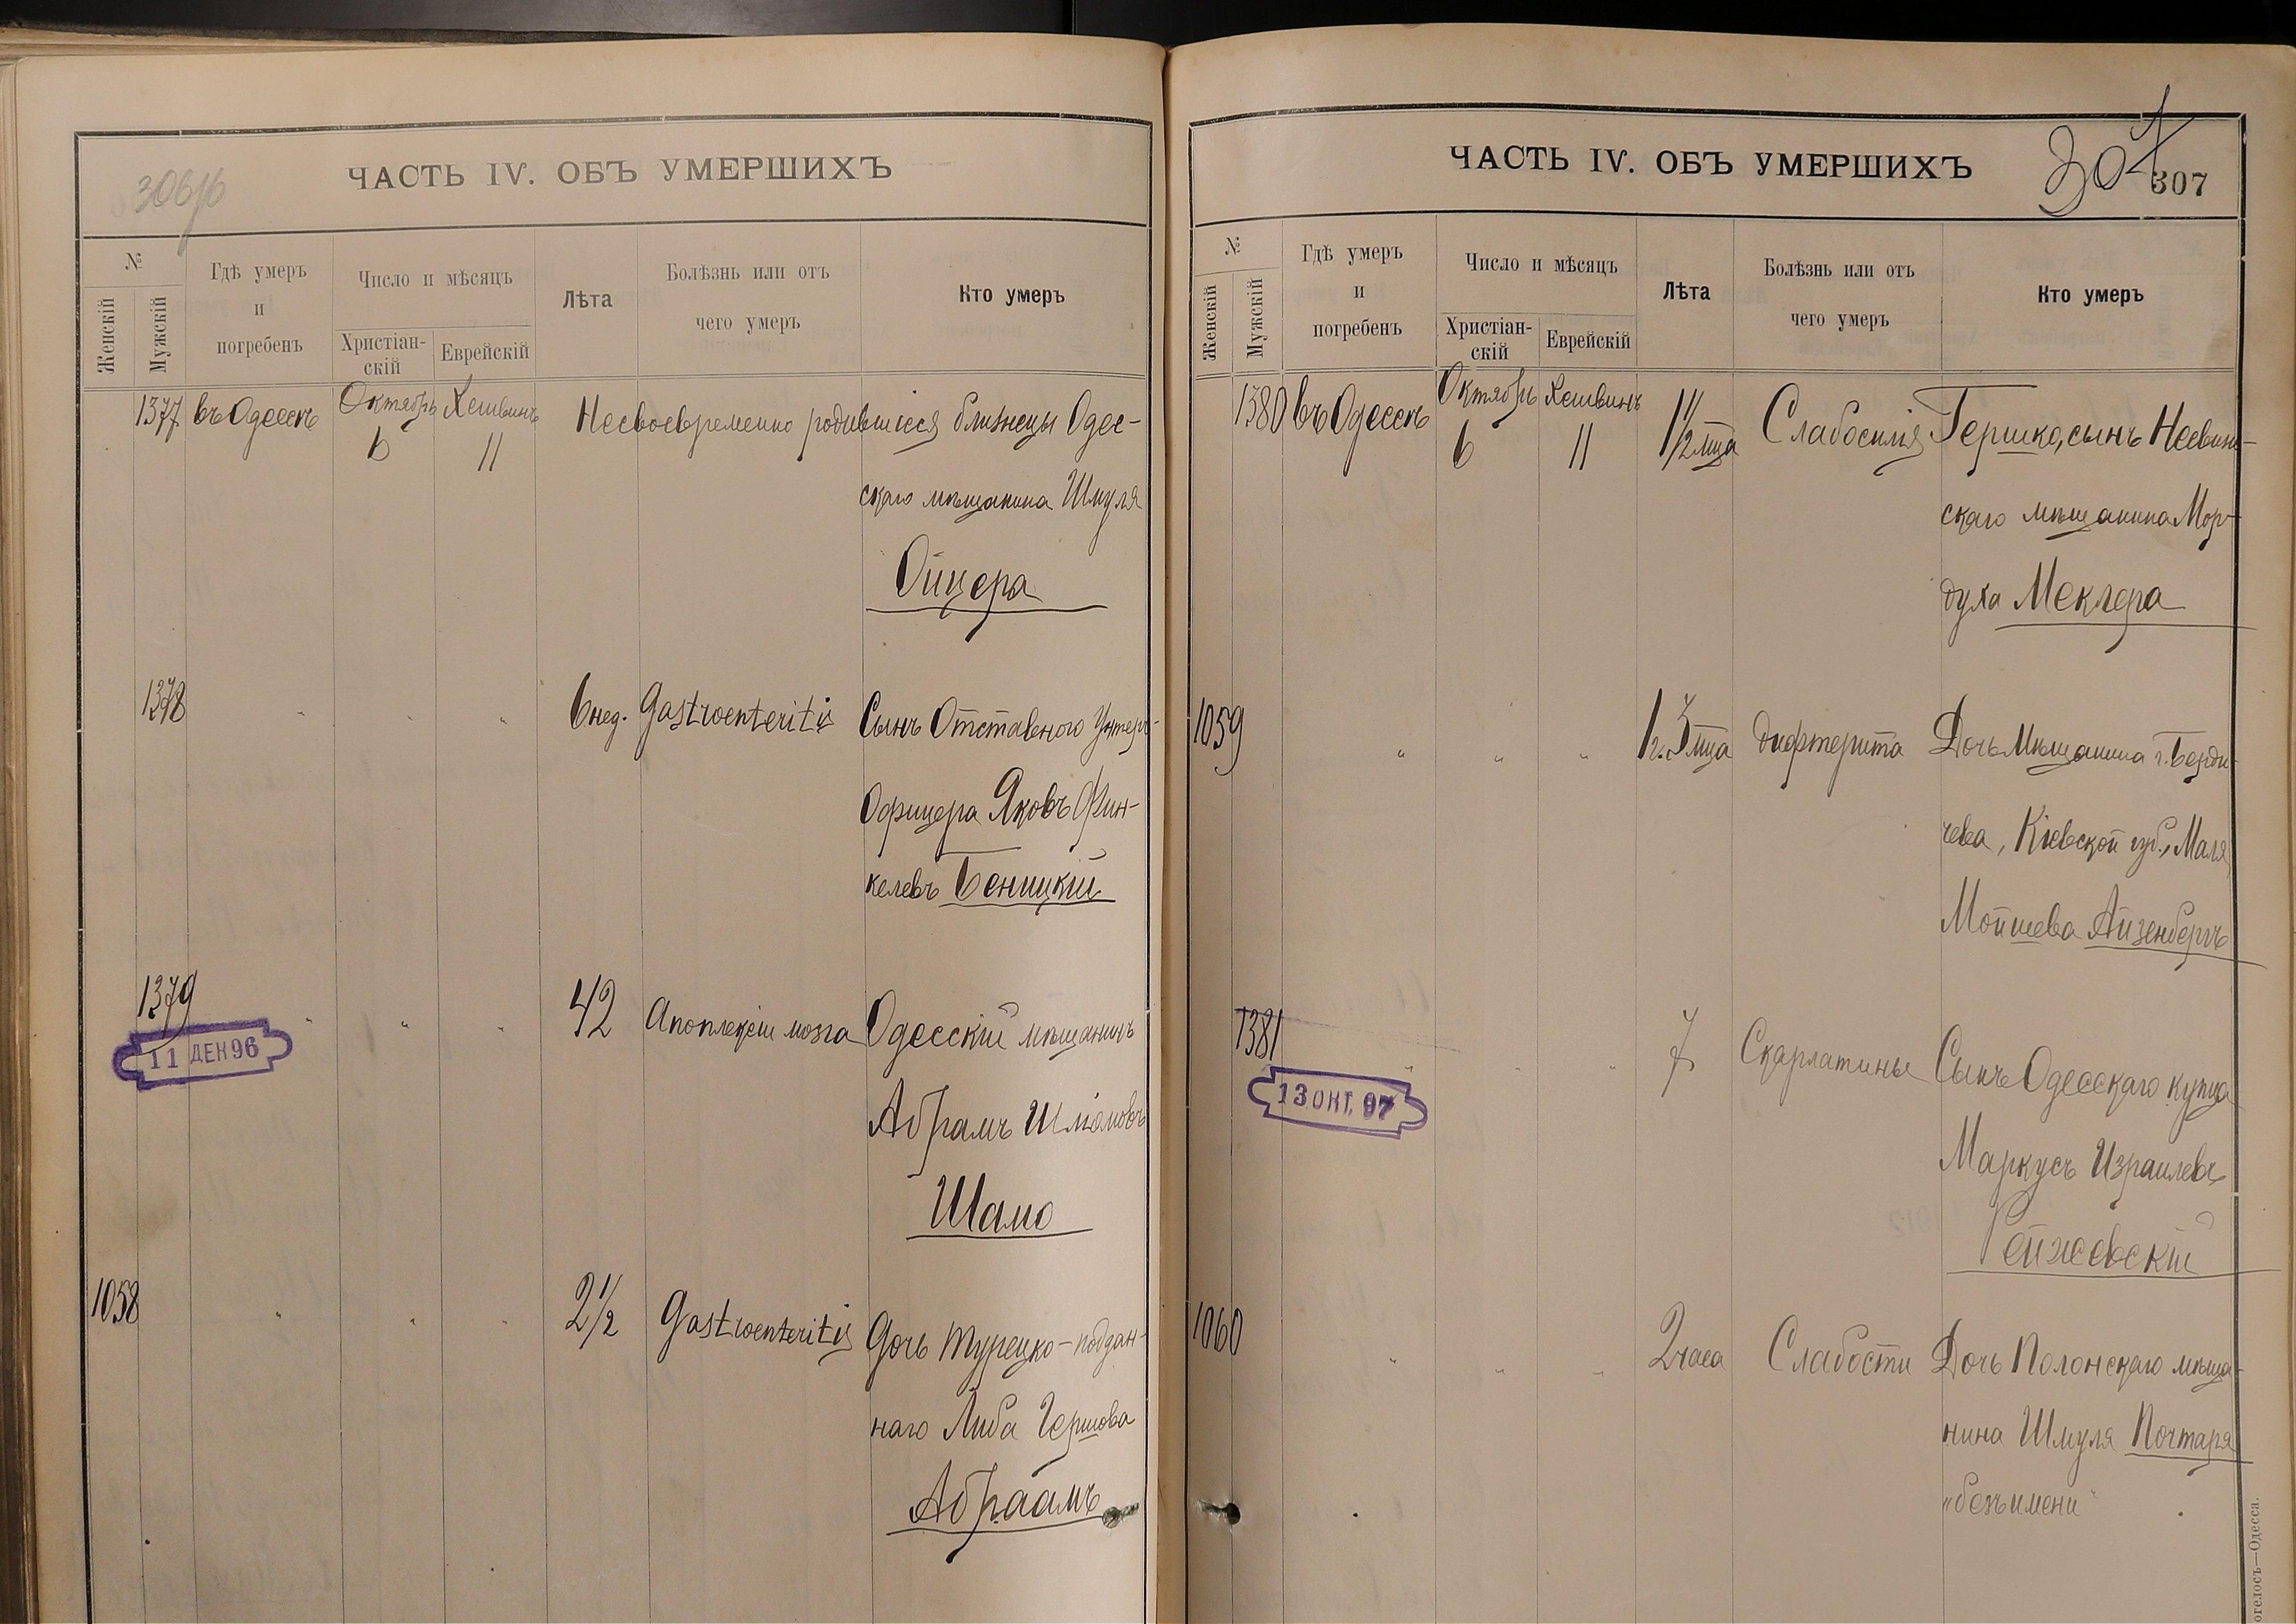 306 об
ЧАСТЬ IV. ОБЪ УМЕРШИХЪ
№
Женскій
Мужскій
Гдѣ умеръ
и
погребенъ
Число и мѣсяцъ
Христіан-
скій
Еврейскій
Лѣта
Болѣзнь или отъ
чего умеръ
Кто умеръ
1377 въ Одессѣ Октябрь Хешвинъ Несвоевременно родившіеся близнецы Одес-
6 11
скаго мѣщанина Шмуля
Ойцера
1378 " " " 6 нед. Gastroenteritis Сынъ Отставного Унтеръ-
Офицера Яковъ Фин-
келевъ Беницкій
1379 " " " 42 Апоплексіи мозга Одесскій мѣщанинъ
11 ДЕК 96
Абрамъ Шліомовъ
Шамо
1058 " " " 2 1/2 Gastroenteritis Дочь турецко-поддан-
наго Либа Гершова
Абраамъ
ЧАСТЬ IV. ОБЪ УМЕРШИХЪ
307
307
№
Женскій
Мужскій
Гдѣ умеръ
и
погребенъ
Число и мѣсяцъ
Христіан-
скій
Еврейскій
Лѣта
Болѣзнь или отъ
чего умеръ
Кто умеръ
1380 въ Одессѣ Октябрь Хешвинъ 1 1/2 мца Слабосилія Гершко, сынъ Несвиж-
6 11
скаго мѣщанина Мор-
духа Меклера
1059 " " " 1 г. 3 мца Дифтерита Дочь Мѣщанина г. Берди-
чева, Кіевской губ., Маля
Мойшева Айзенбергъ
1381 " " " 7 Скарлатины Сынъ Одесскаго купца
13 ОКТ. 97
Маркусъ Израилевъ
Сейжевскій
1060 " " " 2 часа Слабости Дочь Полонскаго мѣща-
нина Шмуля Почтаря
"безъ имени"